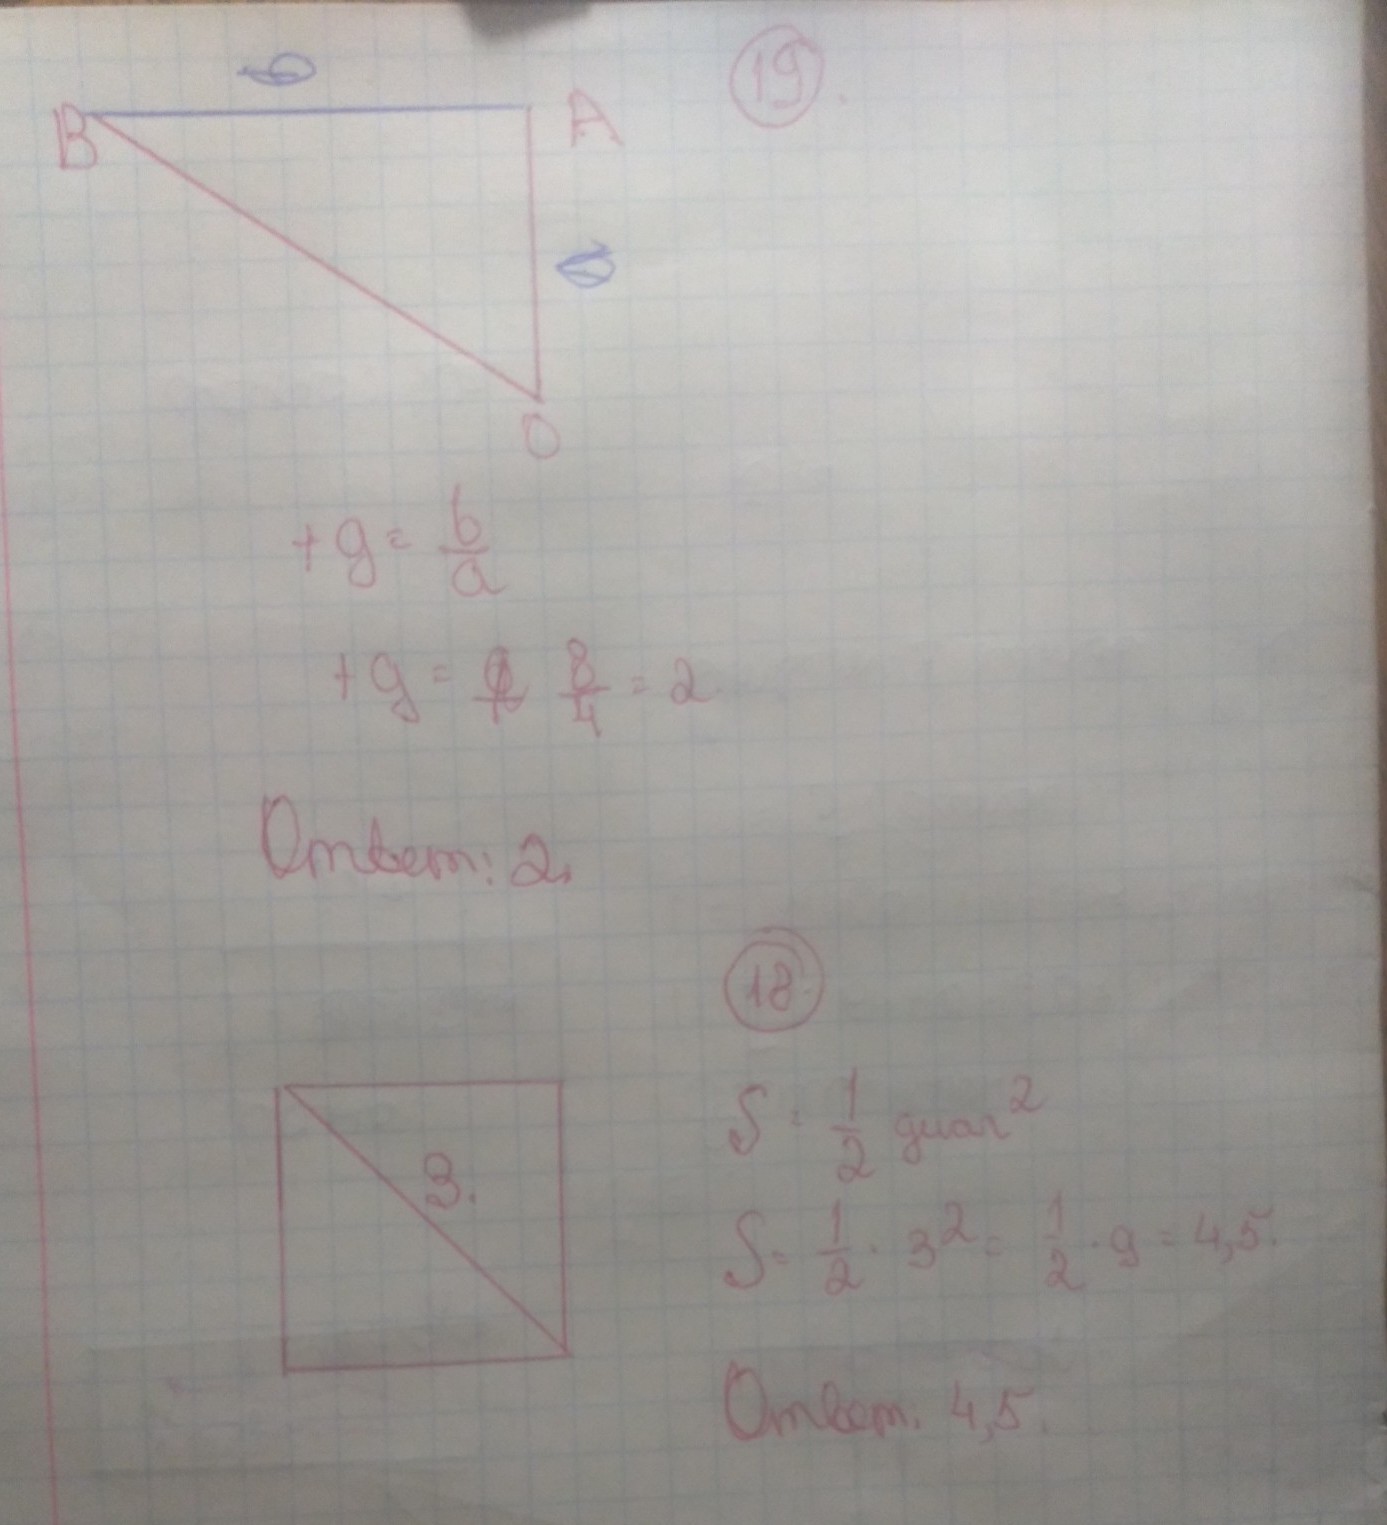 19.
B A
O
tg = b/a
tg = 8/4 = 2
Ответ: 2.
18
3.
S = 1/2 диаг²
S = 1/2 · 3² = 1/2 · 9 = 4,5.
Ответ: 4,5.